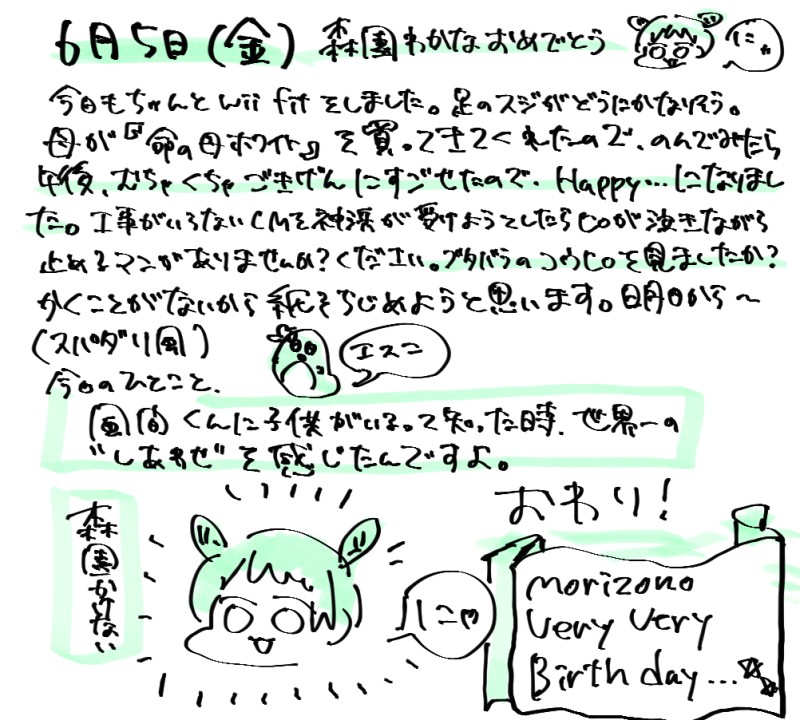 6月5日(金) 森園わかなおめでとう にゃ
今日もちゃんとwii fitをしました。足のスジがどうにかなりそう。
母が『命の母ホワイト』を買ってきてくれたので、のんでみたら
午後、むちゃくちゃごきげんにすごせたので、Happy…になりまし
た。工事がいらないCMを神深が受けようとしたらCOが泣きながら
止めるマンがありませんか？ください。ブタバラのコウCOを見ましたか？
かくことがないから紙をちじめようと思います。明日から〜
(スパダリ風)
エスニ
今日のひとこと、
くんに子供がいるって知った時、世界一の
"しあわせ"を感じたんですよ。
おわり！
森園わかない
にゃ
morizono
very very
Birthday...☆☆